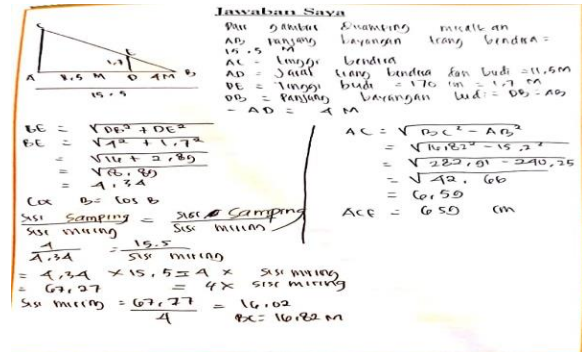 Jawaban Saya
Dari gambar disamping misalkan
AB panjang bayangan tiang bendera =
15.5 M
AC = tinggi bendera
AD = Jarak tiang bendera dan budi = 11,5M
DE = Tinggi budi = 170 cm = 1,7 m
DB = Panjang bayangan budi = DB = AB
- AD = 4 M
C
E
1,7
A 8,5 M D 4M B
15.5
BE = √DB² + DE²
BE = √4² + 1,7²
= √16 + 2,89
= √18,89
= 4,34
Cos B = Cos B
Sisi Samping / Sisi miring = Sisi Samping / Sisi miring
4 / 4,34 = 15.5 / Sisi miring
= 4,34 × 15,5 = 4 × Sisi miring
= 67,27 = 4 × Sisi miring
Sisi miring = 67,27 / 4 = 16,82
BC = 16,82 M
AC = √BC² - AB²
= √16,82² - 15,5²
= √282,91 - 240,25
= √42,66
= 6,59
AC = 659 cm